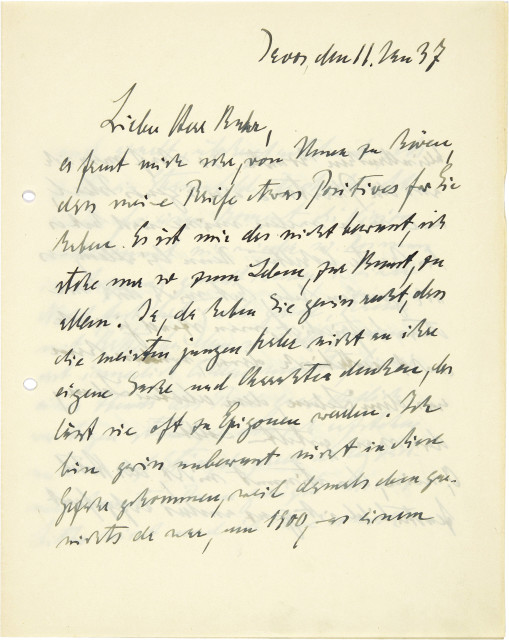 Davos, den 11. Jan 37
Lieber Herr
es freut mich sehr, von Ihnen zu hören,
dass meine Briefe etwas Positives für Sie
haben. Es ist mir das nicht bewusst, ich
stehe nur so zum Leben, zur Kunst, zu
allem. Ja, da haben Sie gewiss recht, dass
die meisten jungen Maler nicht an ihre
eigene Sache und Charakter denken, das
lässt sie oft zu Epigonen werden. Ich
bin gewiss unbewusst nicht in diese
Gefahr gekommen, weil damals eben gar
nichts da war, um 1900, was einem